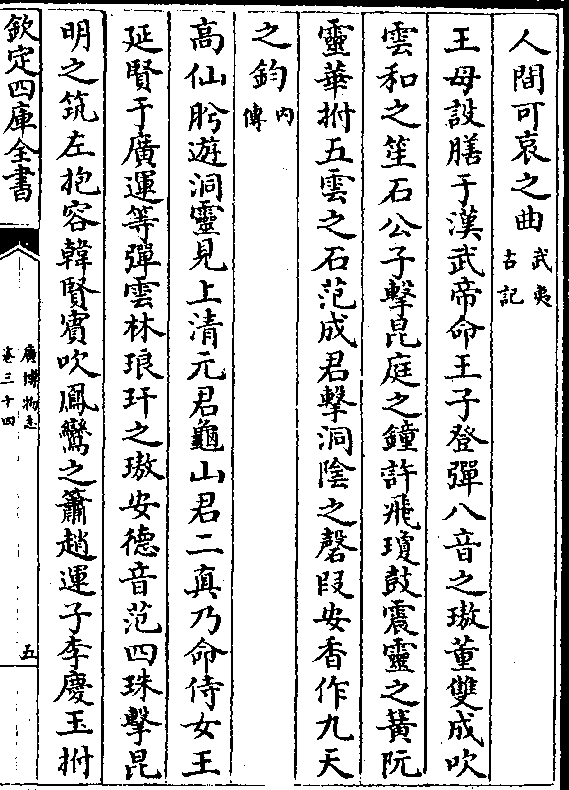 人間可哀之曲武夷古記
王母設膳于漢武帝命王子登彈八音之璈董雙成吹
雲和之笙石公子擊昆庭之鐘許飛瓊鼓震靈之簧阮
靈華拊五雲之石范成君擊洞陰之磬段安香作九天
之鈞内傳
高仙盻遊洞靈見上清元君龜山君二真乃命侍女王
延賢于廣運等彈雲林琅玕之璈安德音范四珠擊昆
明之筑左抱容韓賢賓吹鳳鸞之簫趙運子李慶玉拊
欽定四庫全書
廣博物志
卷三十四
五